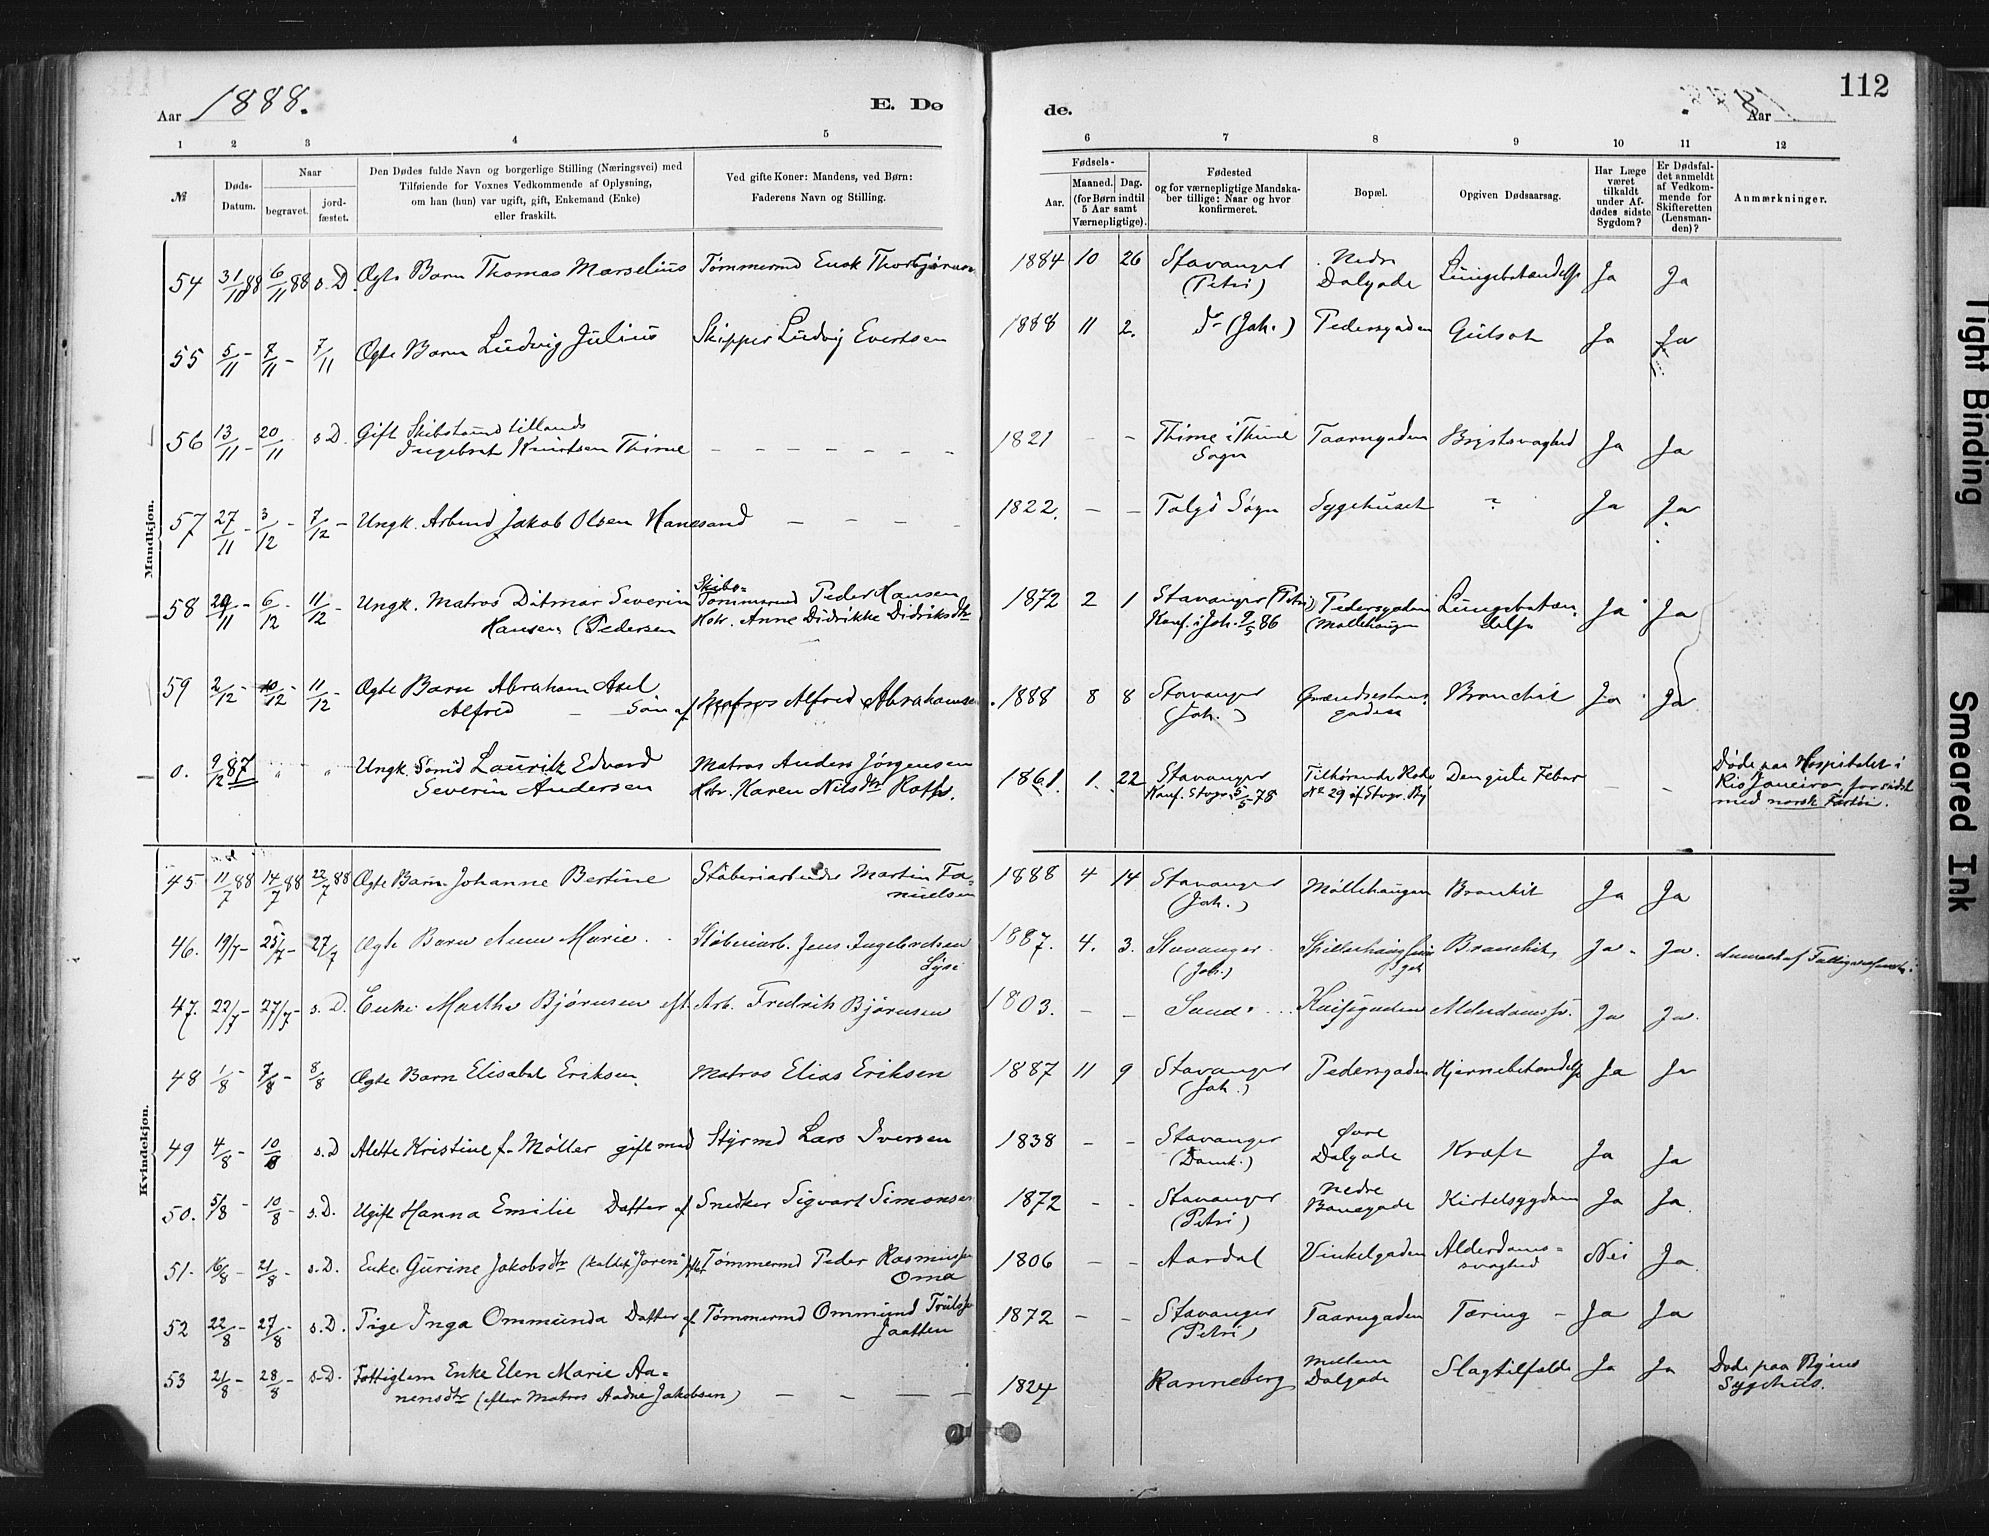 Aar 1888. E. Dø
de. Aar 112
1 2 3 4 5
6 7 8 9 10 11 12
№ Døds-Datum. Naar begravet. jordfæstet. Den Dødes fulde Navn og borgerlige Stilling (Næringsvei) med Tilføiende for Voxnes Vedkommende af Oplysning, om han (hun) var ugift, gift, Enkemand (Enke) eller fraskilt. Ved gifte Koner: Mandens, ved Børn: Faderens Navn og Stilling.
Fødsels- Aar. Maaned. Dag. (for Børn indtil 5 Aar samt Værnepligtige). Fødested og for værnepligtige Mandskaber tillige: Naar og hvor konfirmeret. Bopæl. Opgiven Dødsaarsag. Har Læge været tilkaldt under Afdødes sidste Sygdom? Er Dødsfaldet anmeldt af Vedkommende for Skifteretten (Lensmanden)? Anmærkninger.
Mandkjøn.
54 31/10 88 6/11 88 s.D. Ægte Barn Thomas Marselius Tømmermd Enok Thorbjørnsen 1884 10 26 Stavanger (Petri) Nedre Dalgade Lungebetændelse Ja Ja
55 5/11 - 7/11 - 7/11 Ægte Barn Ludvig Julius Skipper Ludvig Evertsen 1888 11 2. Do (Joh.) Pedersgaden Gulsot Ja Ja
56 13/11 - 20/11 s.D. Gift Skibstømmermand Ingebret Knutsen Thime - - - - - - - 1821 - - Thime i Thime Sogn Taarngaden Brystsvaghed Ja Ja
57 27/11 - 3/12 - 7/12 - Ungk. Arbmd Jakob Olsen Hanesand - - - - 1822. - - Talgø Sogn Sygehuset ? Ja Ja
58 29/11 - 6/12 - 11/12 - Ungk. Matros Ditmar Severin Hansen (Pedersen Skibs-Tømmermd Peder Hansen Kobr. Anne Didrikke Didriksdtr 1872 2 1 Stavanger (Petri) Konf. i Joh. 9/5 86 Pedersgaden (Møllehaugen Lungebetændelse Ja Ja
59 2/12 - 10/12 - 11/12 - Ægte Barn Abraham Axel Alfred - Søn af Matros Alfred Abrahamsen 1888 8 8 Stavanger (Joh.) Grændsestensgaden Bronchit Ja Ja
0. 9/12 87 " " Ungk. Sømd Lauritz Edvard Severin Andersen Matros Anders Jørgensen Kobr. Karen Nilsdtr 1861. 1. 22 Stavanger Konf. Stvgr. 5/5-78 Tilhørende Rode No 29 af Stvgr. By Den gule Feber - - Døde paa Hospitalet i Rio Janeiro, for sidst med norsk Fartøi.
Kvindekjøn.
45 11/7 88 14/7 88 22/7 88 Ægte Barn Johanne Bertine Støberiarbeider Martin Fanuelsen 1888 4 14 Stavanger (Joh.) Møllehaugen Bronkit Ja Ja
46. 19/7 - 25/7 - 27/7 Ægte Barn Anne Marie Støberiarb. Jens Ingebretsen Lyse 1887. 4. 3. Stavanger (Joh.) Bronchit, Ja - Ja. Anmeldt af
47. 22/7 - 27/7 - s.D. Enke Marthe Bjørnsen eft. Arb. Fredrik Bjørnsen 1803. - - Sand Alderdomssv. Ja Ja.
48 1/8 - 7/8 - 8/8 Ægte Barn Elisabet Eriksen. Matros Elias Eriksen 1887 11 9 Stavanger (Joh.) Pedersgaden Hjernebetændelse Ja Ja
49 4/8 - 10/8 s.D Alette Kristine f. Møller gift med Styrmd Lars Iversen 1838 - - Stavanger (Domk.) Øvre Dalgade Kræft Ja Ja
50. 5/8 - 10/8 - s.D. Ugift Hanna Emilie Datter af Snedker Sigvart Simonsen 1872 - - Stavanger (Petri) Nedre Banegade Kirtelsygdom Ja Ja.
51. 16/8 - 21/8 - s.D. Enke Gurine Jakobsdtr (kaldet "Joren") eft. Tømmermd Peder Rasmussen Oma 1806 - - Aardal Vinkelgaden Alderdomssvaghed Nei Ja
52 22/8 - 27/8 - s.D. Pige Inga Ommunda Datter af Tømmermd Ommund Trulssen Jaatten 1872 - - Stavanger (Petri) Taarngaden Tæring - Ja Ja
53 21/8 - 28/8 - s.D. Fattiglem Enke Elen Marie Aanensdtr (efter Matros Aadne Jakobsen) - - - - 1824 Ranneberg Mellem Dalgade Slagtilfælde Ja Ja Døde paa Byens Sygehus.
Tight Binding
Smeared Ink